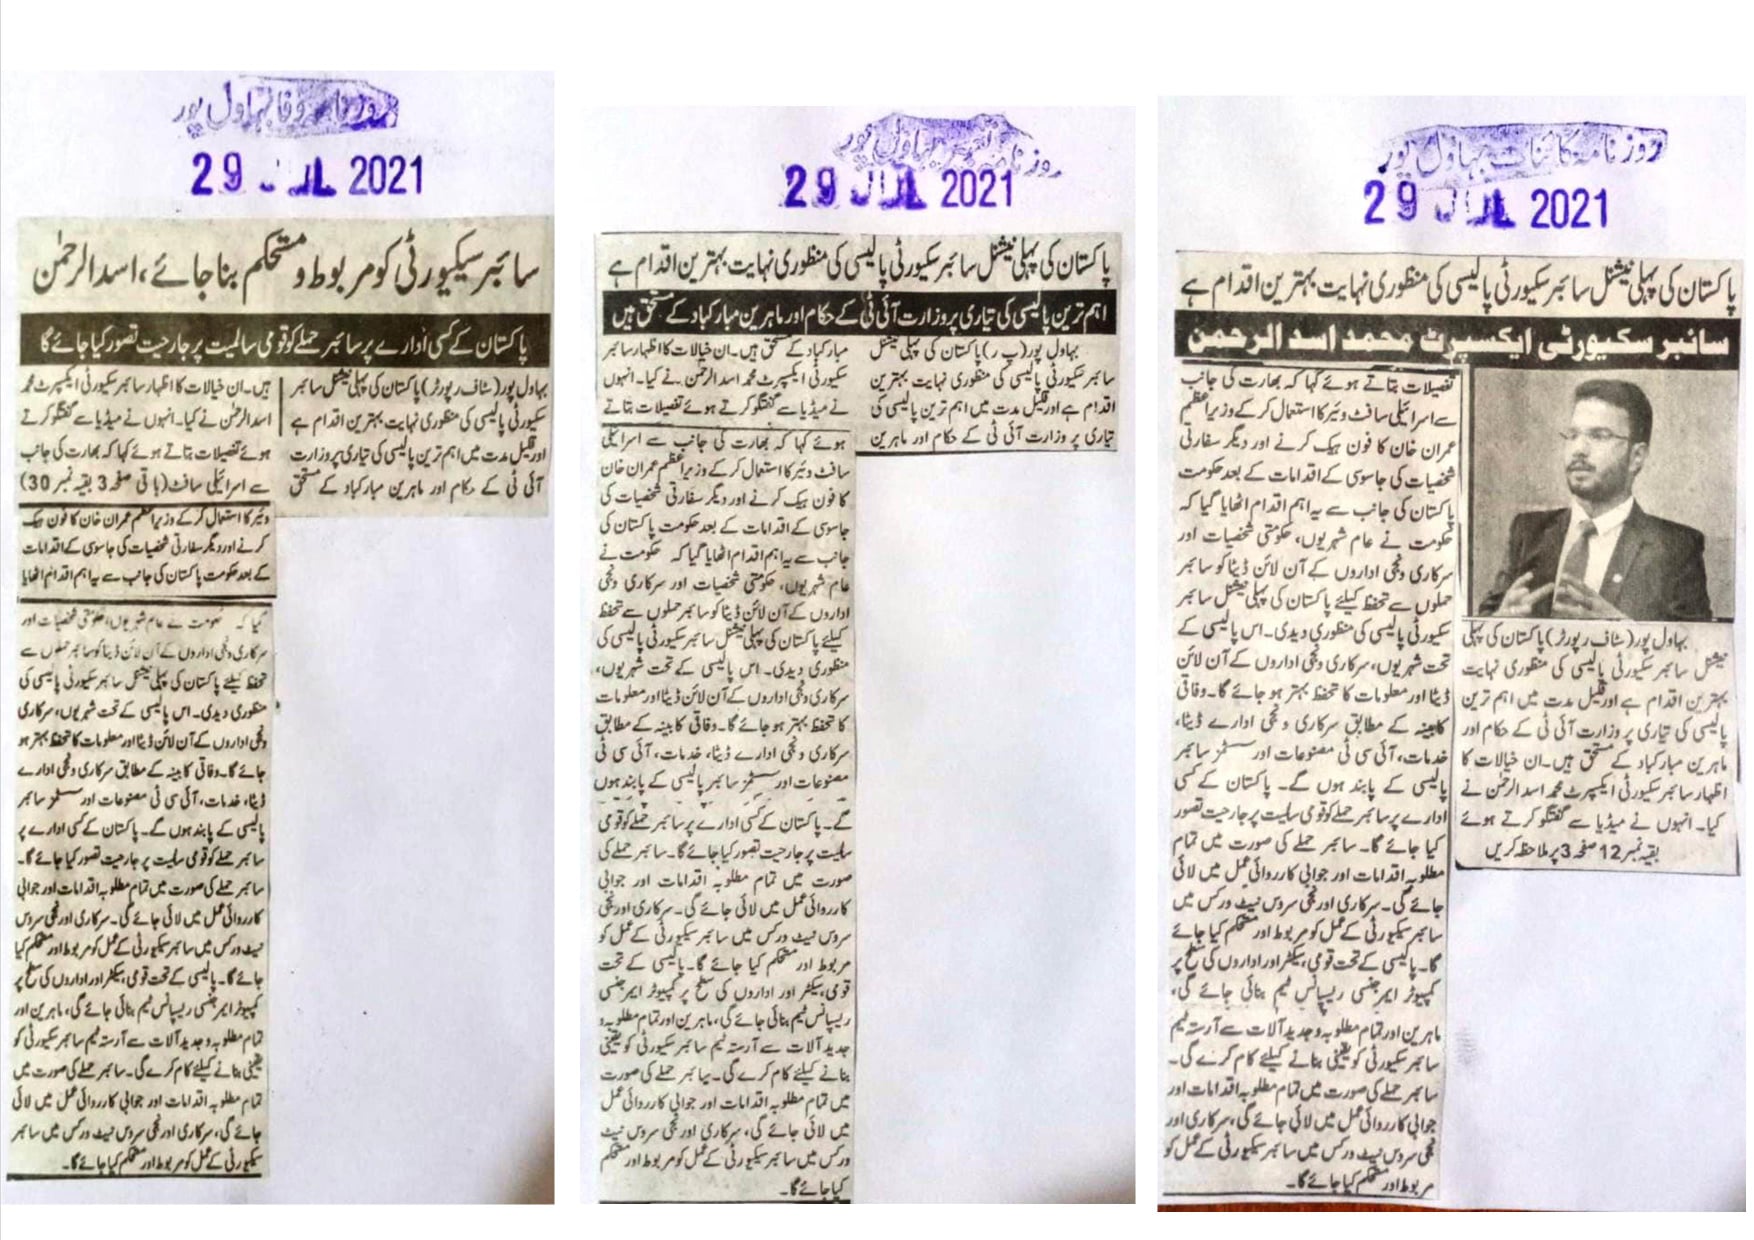 روزنامہ وفا بہاول پور
29 JUL 2021
سائبر سیکیورٹی کو مربوط و مستحکم بنا جائے، اسد الرحمٰن
پاکستان کے کسی ادارے پر سائبر حملے کو قومی سالمیت پر جارحیت تصور کیا جائے گا
بہاول پور (سٹاف رپورٹر) پاکستان کی پہلی نیشنل سائبر
سکیورٹی پالیسی کی منظوری نہایت بہترین اقدام ہے
اور قلیل مدت میں اہم ترین پالیسی کی تیاری پر وزارت
آئی ٹی کے حکام اور ماہرین مبارکباد کے مستحق
ہیں۔ ان خیالات کا اظہار سائبر سکیورٹی ایکسپرٹ محمد
اسد الرحمٰن نے کیا۔ انہوں نے میڈیا سے گفتگو کرتے
ہوئے تفصیلات بتاتے ہوئے کہا کہ بھارت کی جانب
سے اسرائیلی سافٹ (باقی صفحہ 3 بقیہ نمبر 30)
وئیر کا استعمال کر کے وزیراعظم عمران خان کا فون ہیک
کرنے اور دیگر سفارتی شخصیات کی جاسوسی کے اقدامات
کے بعد حکومت پاکستان کی جانب سے یہ اہم اقدام اٹھایا
گیا کہ حکومت نے عام شہریوں، حکومتی شخصیات اور
سرکاری و نجی اداروں کے آن لائن ڈیٹا کو سائبر حملوں سے
تحفظ کیلئے پاکستان کی پہلی نیشنل سائبر سکیورٹی پالیسی کی
منظوری دیدی۔ اس پالیسی کے تحت شہریوں، سرکاری
و نجی اداروں کے آن لائن ڈیٹا اور معلومات کا تحفظ بہتر ہو
جائے گا۔ وفاقی کابینہ کے مطابق سرکاری و نجی ادارے
ڈیٹا، خدمات، آئی سی ٹی مصنوعات اور سسٹمز سائبر
پالیسی کے پابند ہوں گے۔ پاکستان کے کسی ادارے پر
سائبر حملے کو قومی سلیت پر جارحیت تصور کیا جائے گا۔
سائبر حملے کی صورت میں تمام مطلوبہ اقدامات اور جوابی
کارروائی عمل میں لائی جائے گی۔ سرکاری اور نجی سروس
نیٹ ورکس میں سائبر سیکیورٹی کے عمل کو مربوط اور مستحکم کیا
جائے گا۔ پالیسی کے تحت قومی، سیکٹر اور اداروں کی سطح پر
کمپیوٹر ایمرجنسی ریسپانس ٹیم بنائی جائے گی، ماہرین اور
تمام مطلوبہ و جدید آلات سے آرستہ ٹیم سائبر سکیورٹی کو
یقینی بنانے کیلئے کام کرے گی۔ سائبر حملے کی صورت میں
تمام مطلوبہ اقدامات اور جوابی کارروائی عمل میں لائی
جائے گی، سرکاری اور نجی سروس نیٹ ورکس میں سائبر
سیکیورٹی کے عمل کو مربوط اور مستحکم کیا جائے گا۔
روزنامہ بہاول پور
29 JUL 2021
پاکستان کی پہلی نیشنل سائبر سکیورٹی پالیسی کی منظوری نہایت بہترین اقدام ہے
اہم ترین پالیسی کی تیاری پر وزارت آئی ٹی کے حکام اور ماہرین مبارکباد کے مستحق ہیں
بہاول پور (پ ر) پاکستان کی پہلی نیشنل
سائبر سکیورٹی پالیسی کی منظوری نہایت بہترین
اقدام ہے اور قلیل مدت میں اہم ترین پالیسی کی
تیاری پر وزارت آئی ٹی کے حکام اور ماہرین
مبارکباد کے مستحق ہیں۔ ان خیالات کا اظہار سائبر
سکیورٹی ایکسپرٹ محمد اسد الرحمن نے کیا۔ انہوں
نے میڈیا سے گفتگو کرتے ہوئے تفصیلات بتاتے
ہوئے کہا کہ بھارت کی جانب سے اسرائیلی
سافٹ وئیر کا استعمال کر کے وزیراعظم عمران خان
کا فون ہیک کرنے اور دیگر سفارتی شخصیات کی
جاسوسی کے اقدامات کے بعد حکومت پاکستان کی
جانب سے یہ اہم اقدام اٹھایا گیا کہ حکومت نے
عام شہریوں، حکومتی شخصیات اور سرکاری و نجی
اداروں کے آن لائن ڈیٹا کو سائبر حملوں سے تحفظ
کیلئے پاکستان کی پہلی نیشنل سائبر سکیورٹی پالیسی کی
منظوری دیدی۔ اس پالیسی کے تحت شہریوں،
سرکاری و نجی اداروں کے آن لائن ڈیٹا اور معلومات
کا تحفظ بہتر ہو جائے گا۔ وفاقی کابینہ کے مطابق
سرکاری و نجی ادارے ڈیٹا، خدمات، آئی سی ٹی
مصنوعات اور سسٹمز سائبر پالیسی کے پابند ہوں
گے۔ پاکستان کے کسی ادارے پر سائبر حملے کو قومی
سلیت پر جارحیت تصور کیا جائے گا۔ سائبر حملے کی
صورت میں تمام مطلوبہ اقدامات اور جوابی
کارروائی عمل میں لائی جائے گی۔ سرکاری اور نجی
سروس نیٹ ورکس میں سائبر سیکیورٹی کے عمل کو
مربوط اور مستحکم کیا جائے گا۔ پالیسی کے تحت
قومی، سیکٹر اور اداروں کی سطح پر کمپیوٹر ایمرجنسی
ریسپانس ٹیم بنائی جائے گی، ماہرین اور تمام مطلوبہ و
جدید آلات سے آرستہ ٹیم سائبر سکیورٹی کو یقینی
بنانے کیلئے کام کرے گی۔ سائبر حملے کی صورت
میں تمام مطلوبہ اقدامات اور جوابی کارروائی عمل
میں لائی جائے گی، سرکاری اور نجی سروس نیٹ
ورکس میں سائبر سیکیورٹی کے عمل کو مربوط اور مستحکم
کیا جائے گا۔
روزنامہ کائنات بہاول پور
29 JUL 2021
پاکستان کی پہلی نیشنل سائبر سکیورٹی پالیسی کی منظوری نہایت بہترین اقدام ہے
سائبر سکیورٹی ایکسپرٹ محمد اسد الرحمن
بہاول پور (سٹاف رپورٹر) پاکستان کی پہلی
نیشنل سائبر سکیورٹی پالیسی کی منظوری نہایت
بہترین اقدام ہے اور قلیل مدت میں اہم ترین
پالیسی کی تیاری پر وزارت آئی ٹی کے حکام اور
ماہرین مبارکباد کے مستحق ہیں۔ ان خیالات کا
اظہار سائبر سکیورٹی ایکسپرٹ محمد اسد الرحمٰن نے
کیا۔ انہوں نے میڈیا سے گفتگو کرتے ہوئے
بقیہ نمبر 12 صفحہ 3 پر ملاحظہ کریں
تفصیلات بتاتے ہوئے کہا کہ بھارت کی جانب
سے اسرائیلی سافٹ وئیر کا استعمال کر کے وزیراعظم
عمران خان کا فون ہیک کرنے اور دیگر سفارتی
شخصیات کی جاسوسی کے اقدامات کے بعد حکومت
پاکستان کی جانب سے یہ اہم اقدام اٹھایا گیا کہ
حکومت نے عام شہریوں، حکومتی شخصیات اور
سرکاری و نجی اداروں کے آن لائن ڈیٹا کو سائبر
حملوں سے تحفظ کیلئے پاکستان کی پہلی نیشنل سائبر
سکیورٹی پالیسی کی منظوری دیدی۔ اس پالیسی کے
تحت شہریوں، سرکاری و نجی اداروں کے آن لائن
ڈیٹا اور معلومات کا تحفظ بہتر ہو جائے گا۔ وفاقی
کابینہ کے مطابق سرکاری و نجی ادارے ڈیٹا،
خدمات، آئی سی ٹی مصنوعات اور سسٹمز سائبر
پالیسی کے پابند ہوں گے۔ پاکستان کے کسی
ادارے پر سائبر حملے کو قومی سلیت پر جارحیت تصور
کیا جائے گا۔ سائبر حملے کی صورت میں تمام
مطلوبہ اقدامات اور جوابی کارروائی عمل میں لائی
جائے گی۔ سرکاری اور نجی سروس نیٹ ورکس میں
سائبر سیکیورٹی کے عمل کو مربوط اور مستحکم کیا جائے
گا۔ پالیسی کے تحت قومی، سیکٹر اور اداروں کی سطح پر
کمپیوٹر ایمرجنسی ریسپانس ٹیم بنائی جائے گی،
ماہرین اور تمام مطلوبہ و جدید آلات سے آرستہ ٹیم
سائبر سکیورٹی کو یقینی بنانے کیلئے کام کرے گی۔
سائبر حملے کی صورت میں تمام مطلوبہ اقدامات اور
جوابی کارروائی عمل میں لائی جائے گی، سرکاری اور
نجی سروس نیٹ ورکس میں سائبر سیکیورٹی کے عمل کو
مربوط اور مستحکم کیا جائے گا۔